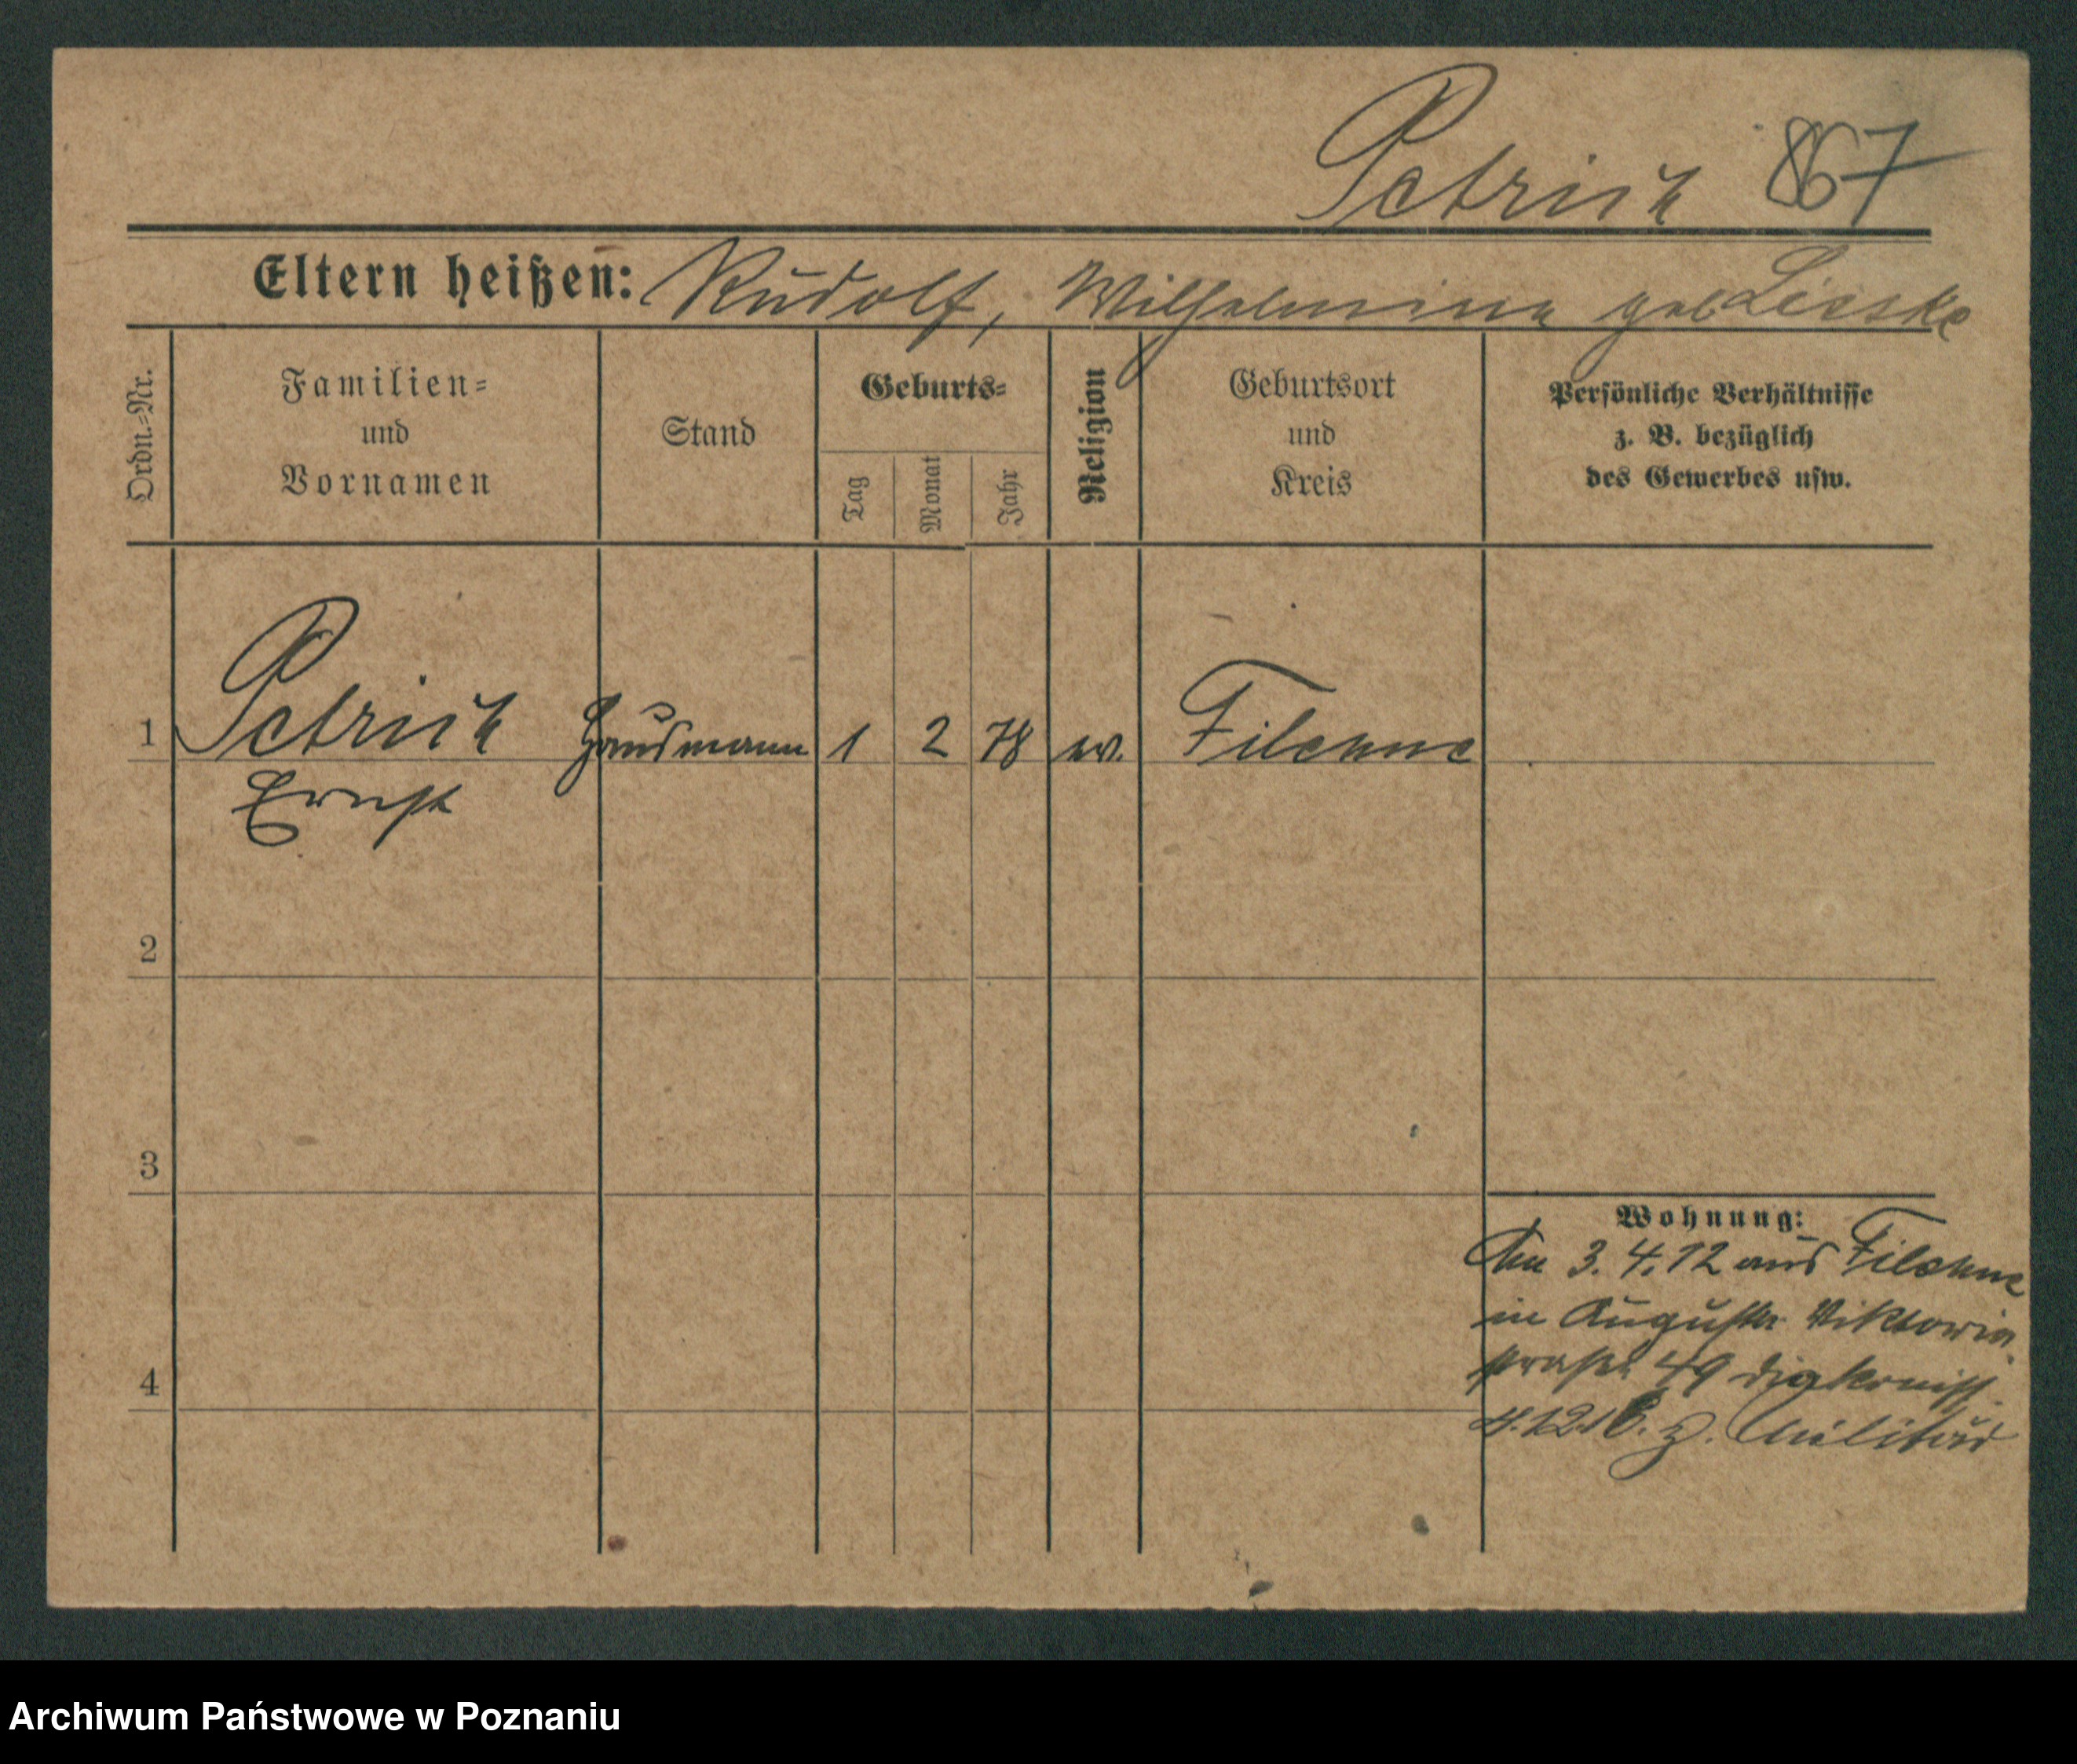 Petrich 867
Eltern heißen: Rudolf, Wilhelmine geb Lieske
Ordn.-Nr.
Familien-
und
Vornamen
Stand
Geburts-
Tag
Monat
Jahr
Religion
Geburtsort
und
Kreis
Persönliche Verhältnisse
z. B. bezüglich
des Gewerbes usw.
1 Petrich Hausmann 1 2 78 ev. Filehne
Ernst
2
3
4
Wohnung:
3. 4. 12 aus Filehne
in Augusta Viktoria
straße 49
z. Militär
Archiwum Państwowe w Poznaniu